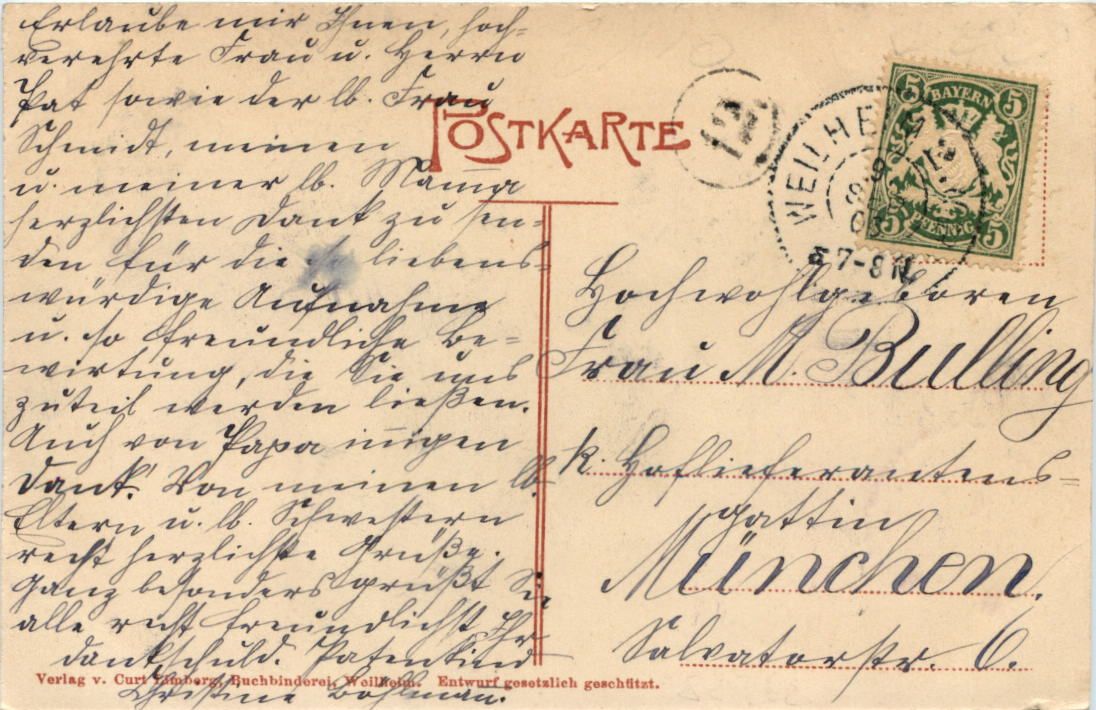 Erlaube mir Ihnen, hoch-
verehrte Frau u. Herrn
Pat sowie der lb. Frau
Schmidt, meinen
u. meiner lb. Mama
herzlichsten Dank zu sen-
den für die liebens-
würdige Aufnahme
u. so freundliche Be-
wirtung, die Sie uns
zuteil werden ließen.
Auch von Papa innigen
Dank! Von meinen lb.
Eltern u. lb. Schwestern
recht herzlichste Grüße.
Ganz besonders grüßt Sie
alle recht freundlichst Ihr
dankschuld. Patenkind
Christine Bohlman.
POSTKARTE
12
WEILHEIM
7-8 N
5 BAYERN 5
5 PFENNIG 5
Hochwohlgeboren
Frau M. Bulling
k. Hoflieferantens-
gattin
München.
Salvatorstr. 6.
Verlag v. Curt Limberg, Buchbinderei, Weilheim. Entwurf gesetzlich geschützt.